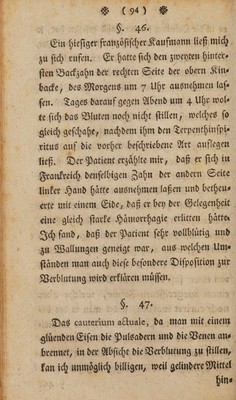 ※ ( 94 ) ※
§. 46.
Ein hiesiger französischer Kaufmann ließ mich
zu sich rufen. Er hatte sich den zweyten hinter-
sten Backzahn der rechten Seite der obern Kin-
backe, des Morgens um 7 Uhr ausnehmen las-
sen. Tages darauf gegen Abend um 4 Uhr wol-
te sich das Bluten noch nicht stillen, welches so
gleich geschahe, nachdem ihm den Terpenthinspi-
ritus auf die vorher beschriebene Art auflegen
ließ. Der Patient erzählte mir, daß er sich in
Frankreich denselbigen Zahn der andern Seite
linker Hand hätte ausnehmen lassen und betheu-
erte mit einem Eide, daß er bey der Gelegenheit
eine gleich starke Hämorrhagie erlitten hätte.
Ich fand, daß der Patient sehr vollblütig und
zu Wallungen geneigt war, aus welchen Um-
ständen man auch diese besondere Disposition zur
Verblutung wird erklären müssen.
§. 47.
Das cauterium actuale, da man mit einem
glüenden Eisen die Pulsadern und die Venen an-
brennet, in der Absicht die Verblutung zu stillen,
kan ich unmöglich billigen, weil gelindere Mittel
hin-